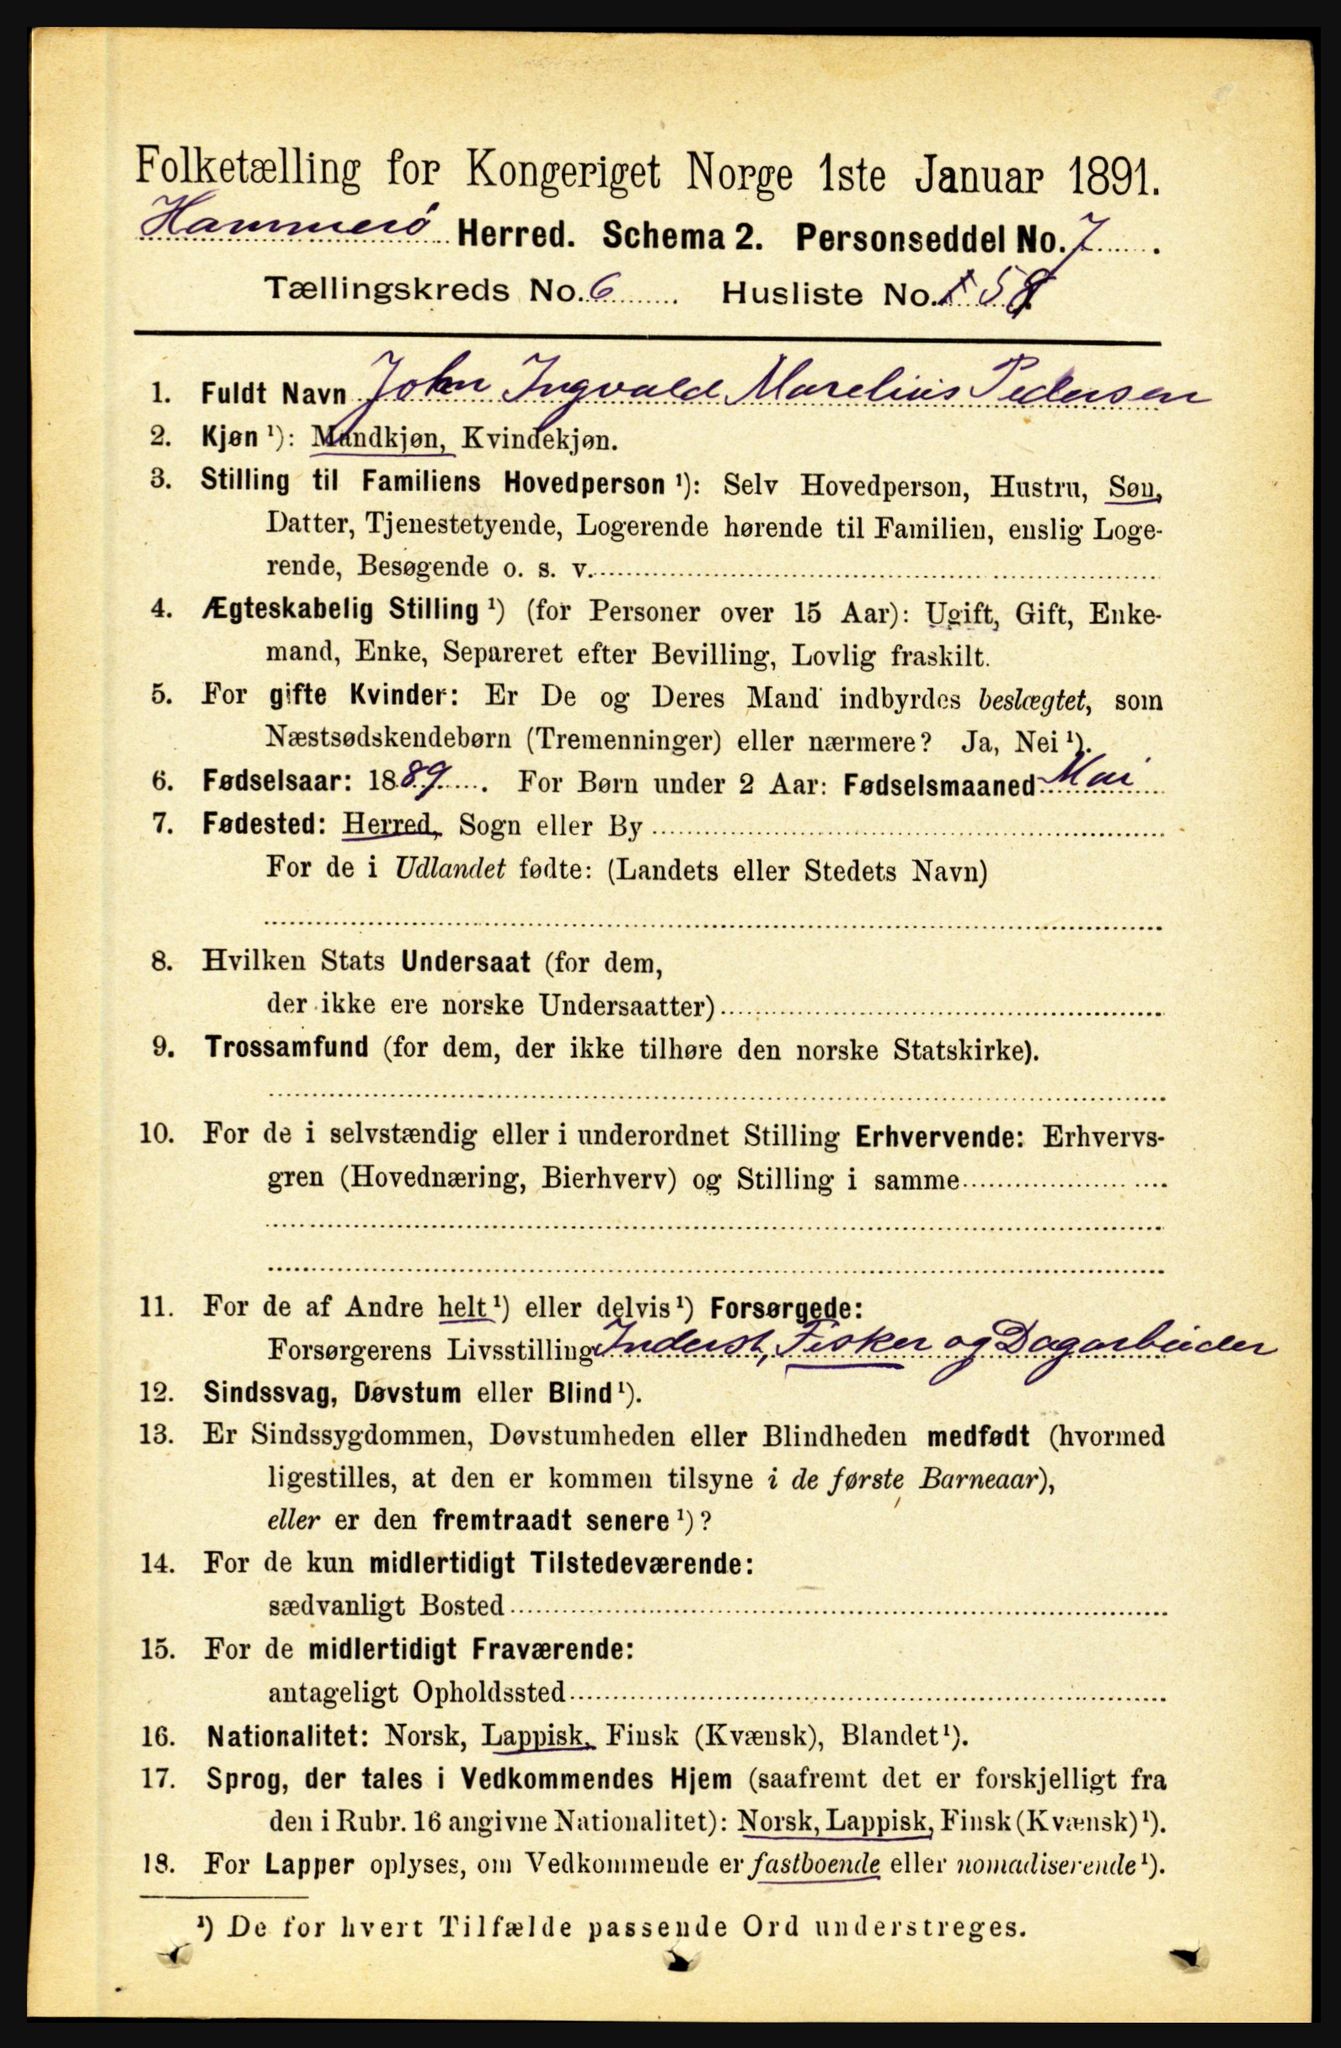 Folketælling for Kongeriget Norge 1ste Januar 1891.
Hammerø Herred. Schema 2. Personseddel No. 7
Tællingskreds No. 6 Husliste No. 58
1. Fuldt Navn John Ingvald Marelius Pedersen
2. Kjøn¹): Mandkjøn, Kvindekjøn.
3. Stilling til Familiens Hovedperson¹): Selv Hovedperson, Hustru, Søn,
Datter, Tjenestetyende, Logerende hørende til Familien, enslig Loge-
rende, Besøgende o. s. v.
4. Ægteskabelig Stilling¹) (for Personer over 15 Aar): Ugift, Gift, Enke-
mand, Enke, Separeret efter Bevilling, Lovlig fraskilt.
5. For gifte Kvinder: Er De og Deres Mand indbyrdes beslægtet, som
Næstsødskendebørn (Tremenninger) eller nærmere? Ja, Nei¹).
6. Fødselsaar: 1889. For Børn under 2 Aar: Fødselsmaaned Mai
7. Fødested: Herred, Sogn eller By
For de i Udlandet fødte: (Landets eller Stedets Navn)
8. Hvilken Stats Undersaat (for dem,
der ikke ere norske Undersaatter)
9. Trossamfund (for dem, der ikke tilhøre den norske Statskirke).
10. For de i selvstændig eller i underordnet Stilling Erhvervende: Erhvervs-
gren (Hovednæring, Bierhverv) og Stilling i samme
11. For de af Andre helt¹) eller delvis¹) Forsørgede:
Forsørgerens Livsstilling Inderst, Fisker og Dagarbeider
12. Sindssvag, Døvstum eller Blind¹).
13. Er Sindssygdommen, Døvstumheden eller Blindheden medfødt (hvormed
ligestilles, at den er kommen tilsyne i de første Barneaar),
eller er den fremtraadt senere¹)?
14. For de kun midlertidigt Tilstedeværende:
sædvanligt Bosted
15. For de midlertidigt Fraværende:
antageligt Opholdssted
16. Nationalitet: Norsk, Lappisk, Finsk (Kvænsk), Blandet¹).
17. Sprog, der tales i Vedkommendes Hjem (saafremt det er forskjelligt fra
den i Rubr. 16 angivne Nationalitet): Norsk, Lappisk, Finsk (Kvænsk)¹).
18. For Lapper oplyses, om Vedkommende er fastboende eller nomadiserende¹).
¹) De for hvert Tilfælde passende Ord understreges.